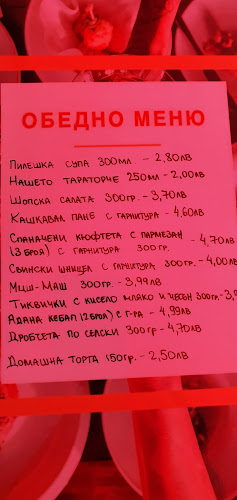 ОБЕДНО МЕНЮ
Пилешка супа 300мл. - 2,80лв
Нашето тараторче 250мл - 2,00лв
Шопска салата 300гр. - 3,70лв
Кашкавал пане с гарнитура - 4,60лв
Спаначени кюфтета с пармезан
(3 броя) с гарнитура 300гр. - 4,70лв
Свински шницел с гарнитура 300гр. - 4,00лв
Миш-Маш 300гр. - 3,99лв
Тиквички с кисело мляко и чесън 300гр. - 3,9
Адана кебап (2 броя) с г-ра - 4,99лв
Дробчета по селски 300гр - 4,70лв
Домашна торта 150гр. - 2,50лв